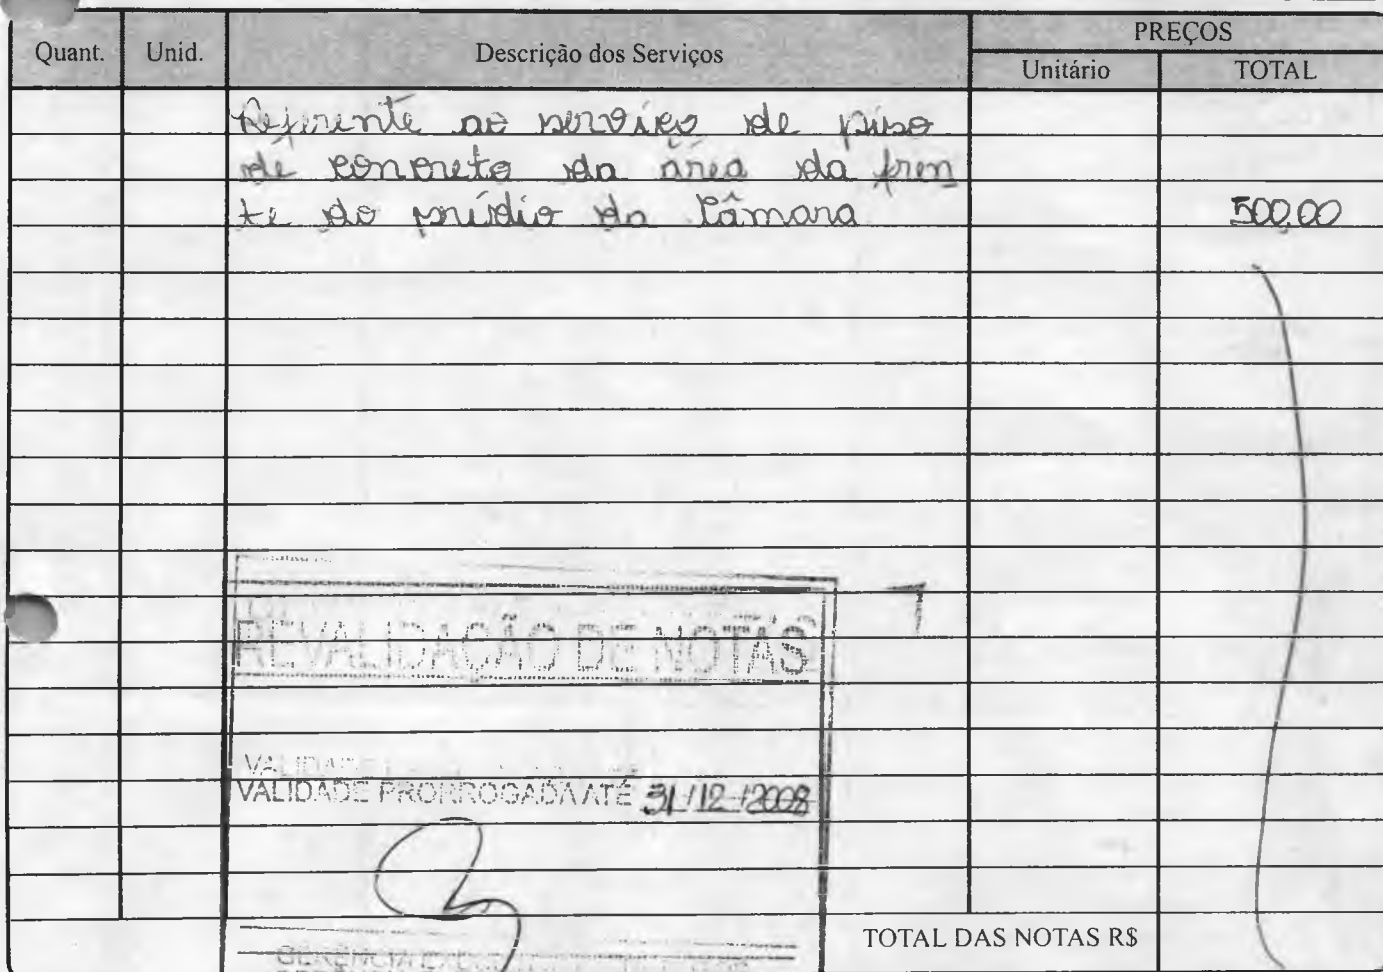 Quant. Unid. Descrição dos Serviços PREÇOS
Unitário TOTAL
Referente ao serviço de piso
de concreto da área da fren
te do prédio da Câmara 500,00
REVALIDAÇÃO DE NOTAS
VALIDADE
VALIDADE PRORROGADA ATÉ 31/12/2008
TOTAL DAS NOTAS R$
GERÊNCIA